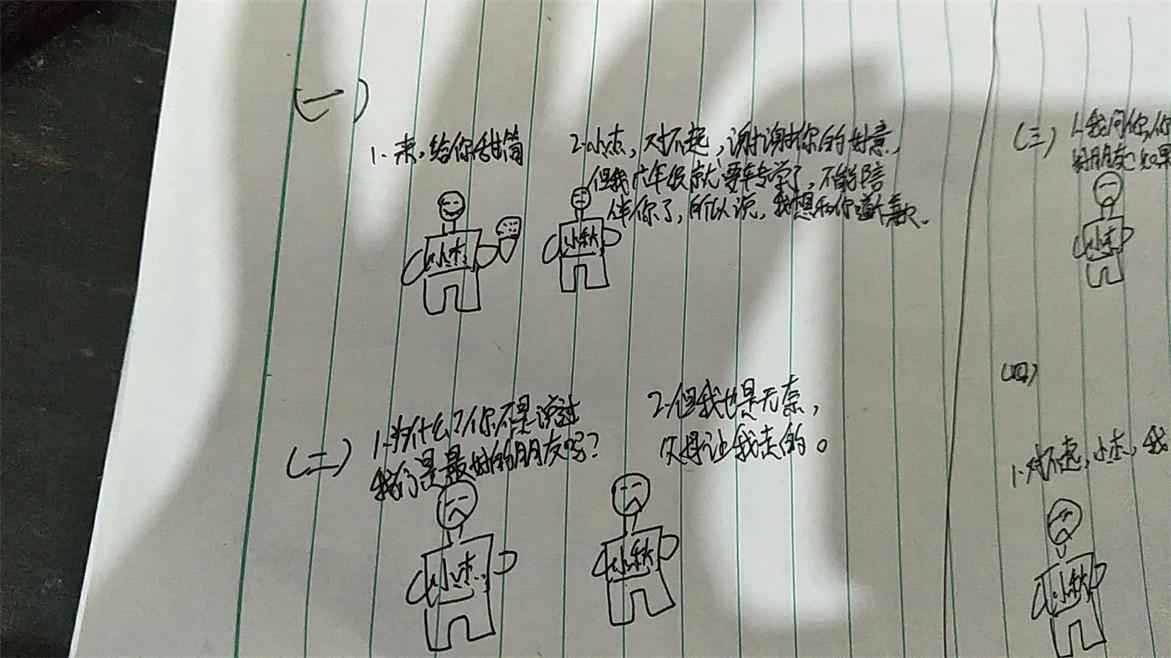 (一)
1.来,给你甜筒
2.小杰,对不起,谢谢你的好意,
但我六年级就要转学了,不能陪
伴你了,所以说,我想和你道个歉。
小杰
小秋
(二)
1.为什么?你不是说过
我们是最好的朋友吗?
2.但我也是无奈,
父母让我走的。
小杰
小秋
(三)
1.我问你,你
好朋友?如果
小杰
(四)
1.对不起,小杰,我
小秋